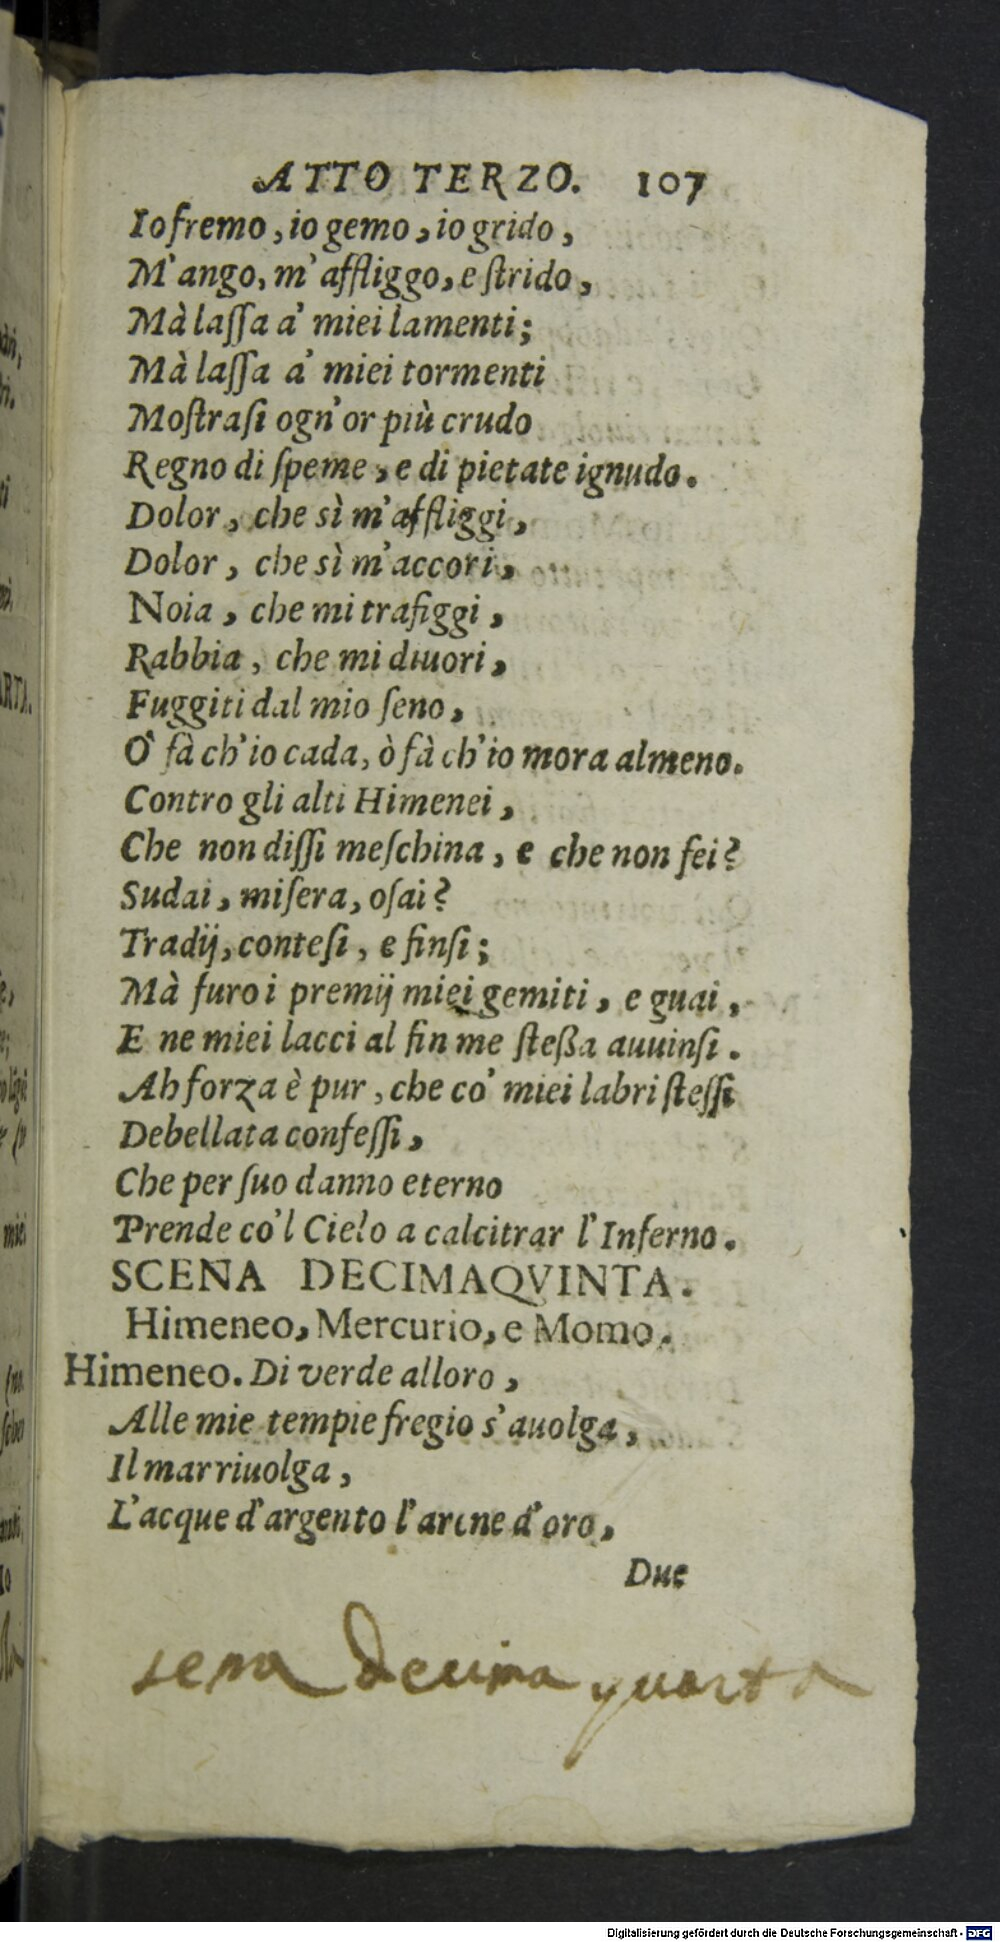 ATTO TERZO. 107
Io fremo, io gemo, io grido,
M'ango, m'affliggo, e ſtrido,
Mà laſſa a' miei lamenti;
Mà laſſa a' miei tormenti
Moſtraſi ogn'or più crudo
Regno di ſpeme, e di pietate ignudo.
Dolor, che sì m'affliggi,
Dolor, che sì m'accori,
Noia, che mi trafiggi,
Rabbia, che mi diuori,
Fuggiti dal mio ſeno,
O fà ch'io cada, ò fà ch'io mora almeno.
Contro gli alti Himenei,
Che non diſſi meſchina, e che non fei?
Sudai, miſera, oſai?
Tradij, conteſi, e finſi;
Mà furo i premij miei gemiti, e guai,
E ne miei lacci al fin me ſteßa auuinſi.
Ah forza è pur, che co' miei labri ſteſſi
Debellata confeſſi,
Che per ſuo danno eterno
Prende co'l Cielo a calcitrar l'Inferno.
SCENA DECIMAQVINTA.
Himeneo, Mercurio, e Momo.
Himeneo. Di verde alloro,
Alle mie tempie fregio s'auolga,
Il mar riuolga,
L'acque d'argento l'arene d'oro,
Due
sena decima quarta
Digitalisierung gefördert durch die Deutsche Forschungsgemeinschaft - DFG